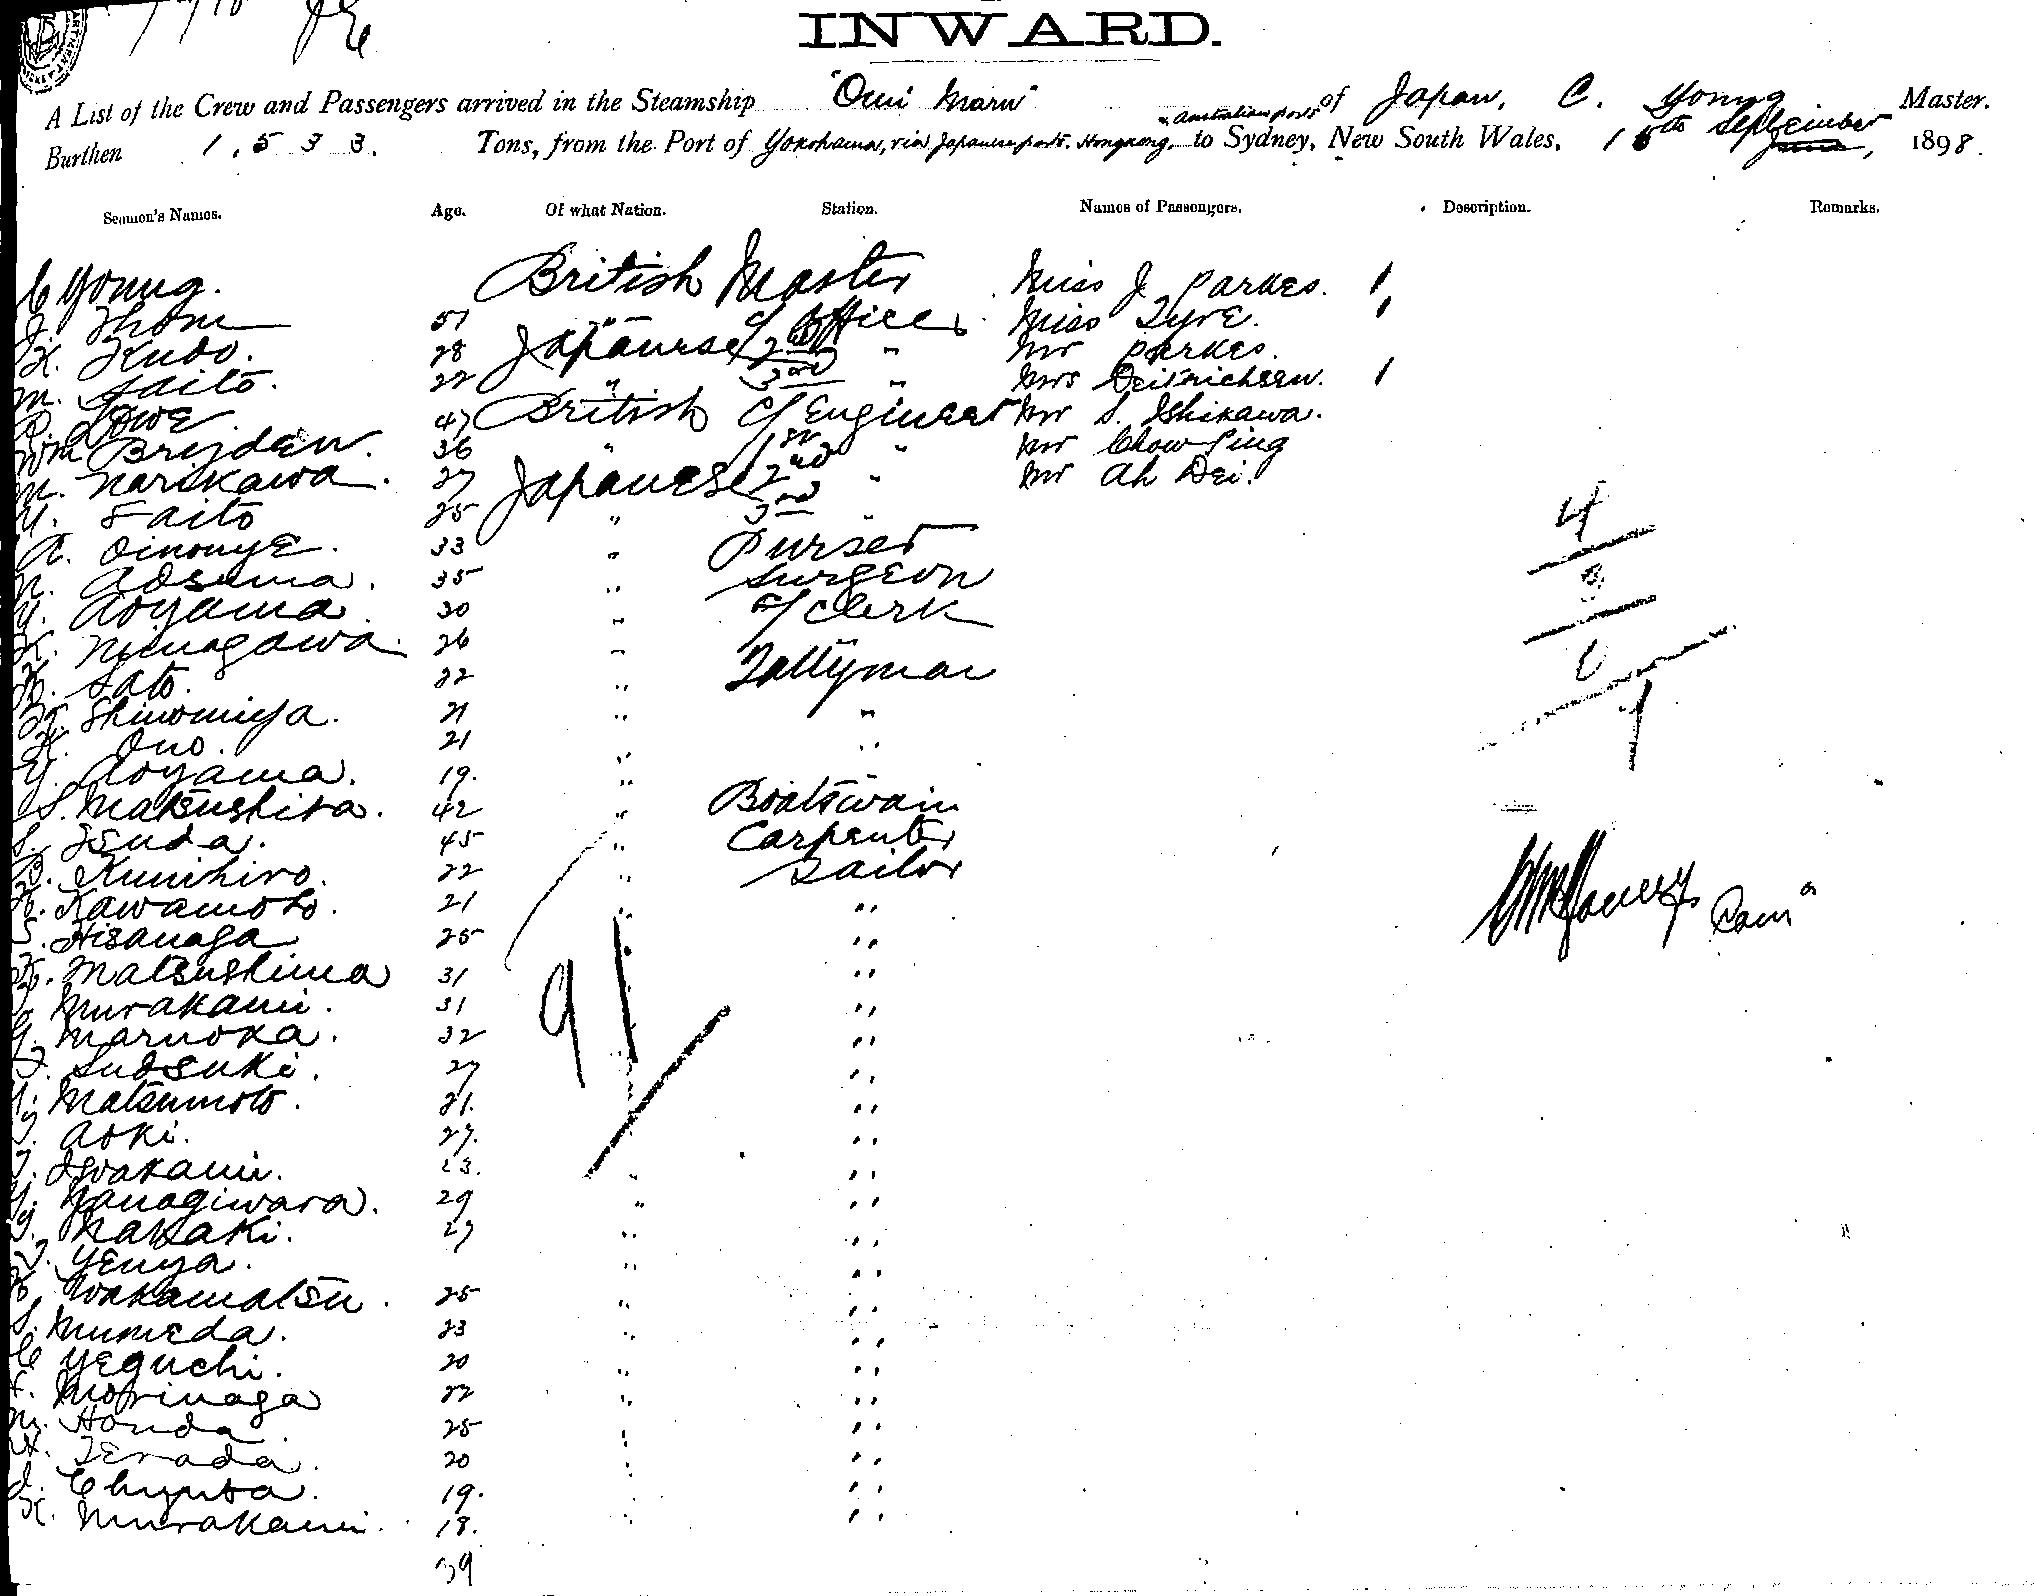 INWARD.
A List of the Crew and Passengers arrived in the Steamship "Omi Maru" of Japan, C. Young Master.
Burthen 1,533. Tons, from the Port of Yokohama, via Japanese ports, Hongkong, & Australian ports to Sydney, New South Wales, 15th September 1898.
Seamen's Names. Age. Of what Nation. Station. Names of Passengers. Description. Remarks.
C Young. British Master Miss J Parkes. 1
J. Thom 51 " C/ Officer Miss Tyre. 1
K. Kudo. 28 Japanese 2nd " Mr Parkes.
M. Saito. 22 " 3rd " Mrs Deitrichsen. 1
Lowe 47 British C/ Engineer Mr S. Ishikawa.
Wm Bryden. 36 " 1st " Mr Chow Ping
Narikawa. 27 Japanese 2nd " Mr Ah Dei.
Saito 25 " 3rd "
Oinouye. 33 " Purser
35 " Surgeon
Y. Aoyama. 30 " C/ Clerk
Ninagawa. 26 "
Sato. 22 " Tallyman
Shinomiya. 21 " "
Ono. 21 " "
Y. Aoyama. 19. "
S. Matsushita. 42 " Boatswain
S. Tsuda. 45 " Carpenter
Kunihiro. 22 " Sailor
Kawamoto. 21 " "
S. Hisanaga 25 "
K. Matsushima 31 "
Murakami. 31 "
Maruoka. 32 "
27 "
Matsumoto. 21. "
Aoki. 27. "
Iwakami. 23. " "
Yanagiwara. 29 " "
27 " "
Yenya. " "
Wakamatsu. 25 " "
S. Mumeda. 23 " "
Yeguchi. 20 " "
Morinaga 22 " "
M. Honda. 25 " "
Terada. 20 " "
19. " "
K. Murakami. 18. " "
39
4
91